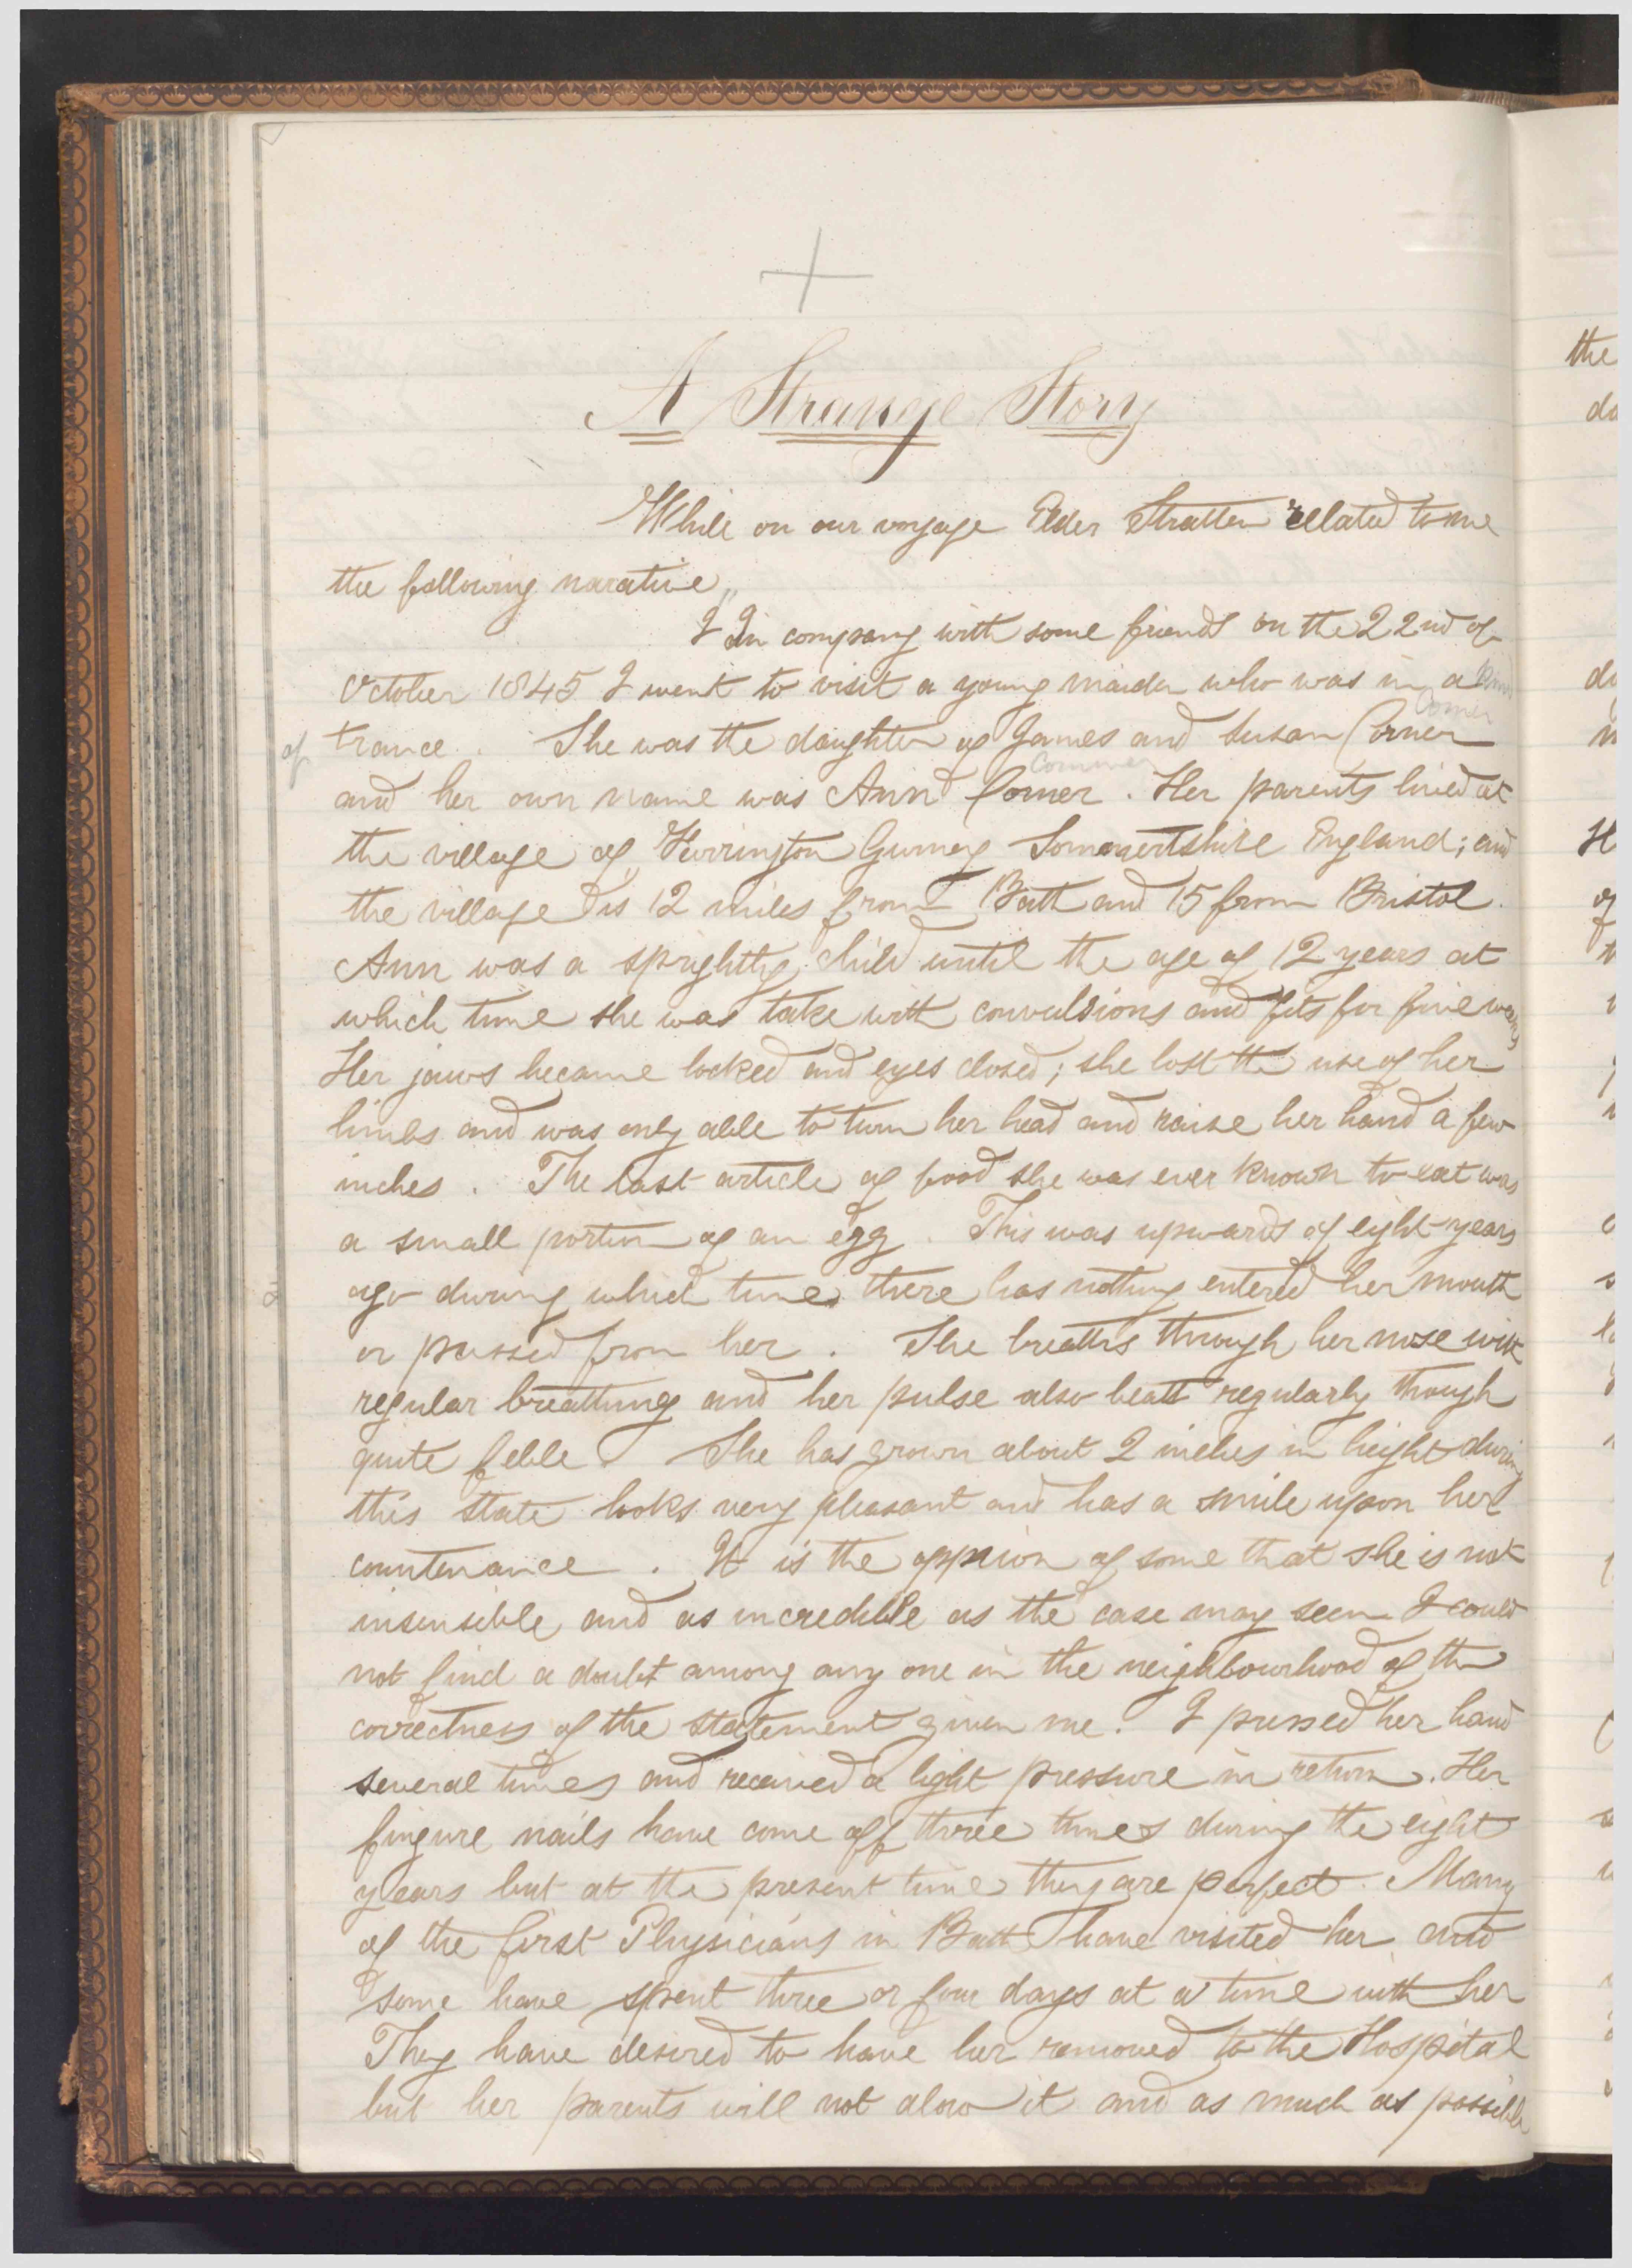 A Strange Story
While on our voyage Elder Stratten rellated to me
the following narative,,
I In company with some friends on the 22nd of
October 1845 I went to visit a young maiden who was in a kind
of trance. She was the daughter of James and Susan Corner
Comer
and her own name was Ann Comer. Her parents lived at
Commer
the village of Farrington Gurney Sommersertshire England; and
the village is 12 miles from Bath and 15 from Bristol.
Ann was a sprightly child until the age of 12 years at
which time she was take with convulsions and fits for five weeks
Her jaws became locked and eyes closed; she lost the use of her
limbs and was only able to turn her head and raise her hand a few
inches. The last article of food she was ever known to eat was
a small portion of an egg. This was upwards of eight years
ago during which time there has nothing entered her mouth
or passed from her. She breaths through her nose with
regular breathing and her pulse also beats regularly though
quite feble. She has grown about 2 inches in height during
this state looks very pleasant and has a smile upon her
countenance. It is the oppinion of some that she is not
insensible and as incredible as the case may seem I could
not find a doubt among any one in the neighbourhood of the
correctness of the statement given me. I pressed her hand
several times and received a light pressure in return. Her
fingure nails have come off three times during the eight
years but at the present time they are perfect. Many
of the first Physicians in Bath have visited her and
some have spent three or four days at a time with her
They have desired to have her removed to the Hospital
but her parents will not alow it and as much as possible
the